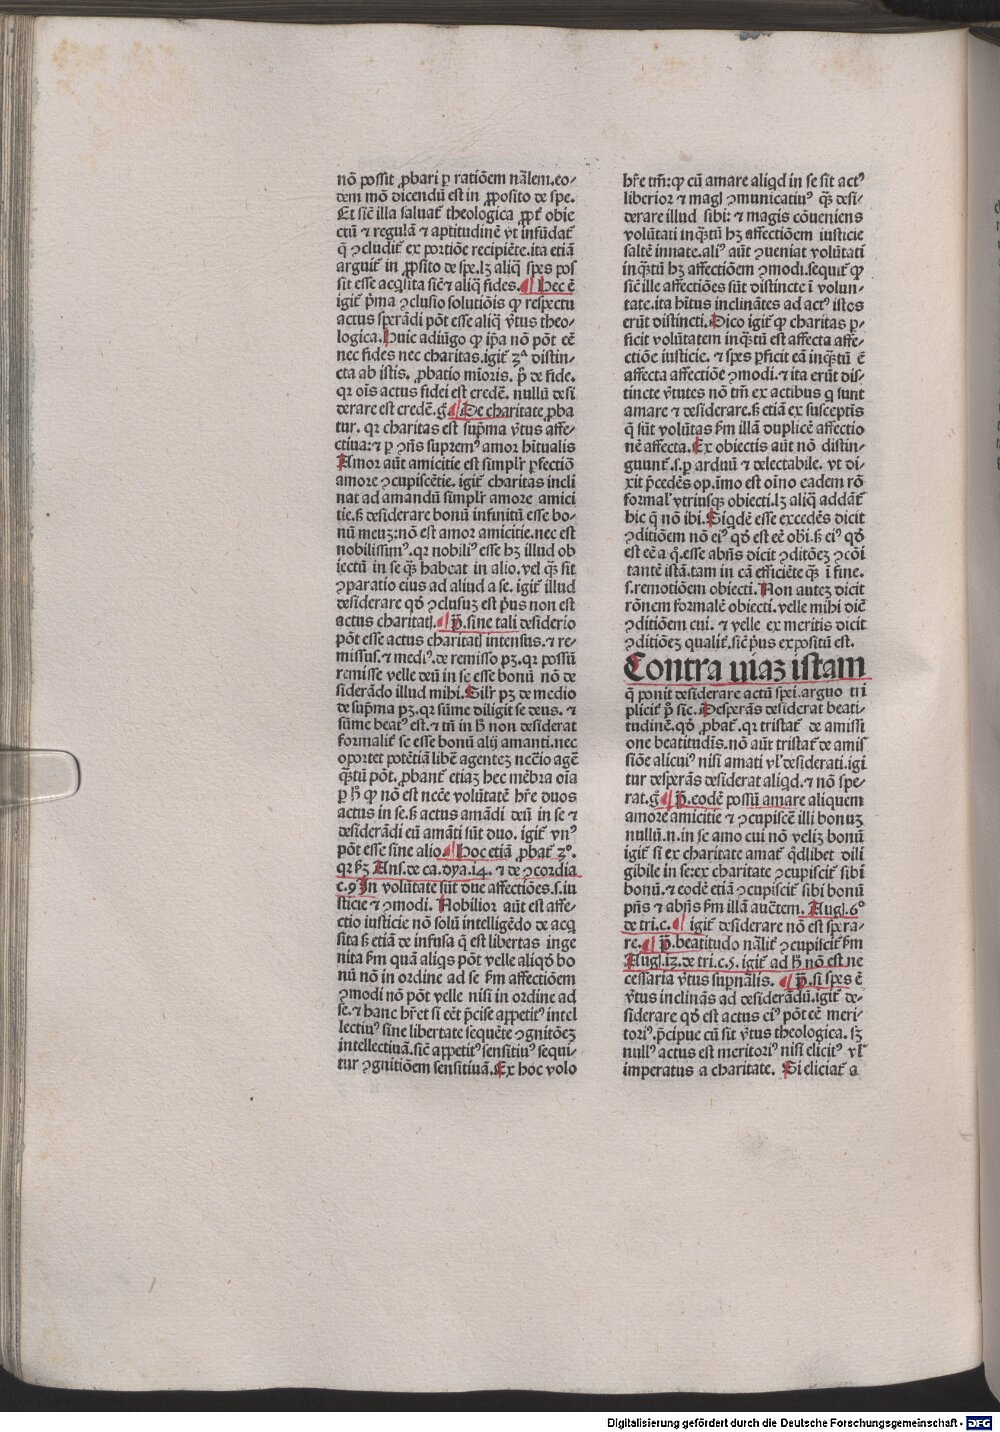 nō possit ꝓbari ꝑ ratiōem nãlem.eo⸗
dem mō dicendũ est in ꝓposito de spe.
Et sic̄ illa saluat᷑ theologica ꝓpt᷑ obie
ctũ ⁊ regulã ⁊ aptitudinē vt infũdat᷑
q̄ ꝯcludit᷑ ex portiōe recipiēte.ita etiã
arguit᷑ in ꝓposito de spe.lꝫ aliq̄ spes pos
sit esse acq̇sita sic̄ ⁊ aliq̄ fides. Hec ē
igit᷑ p̄ma ꝯclusio solutiōis ꝙ respectu
actus sperãdi pōt esse aliq̄ v̄tus theo⸗
logica.Huic adiũgo ꝙ ip̄a nō pōt eē
nec fides nec charitas.igit᷑ 2ᵃ distin⸗
cta ab istis. ꝓbatio mīoris. p̄ de fide.
qr oīs actus fidei est credē. nullũ desi
derare est credē.g̊ De charitate ꝓba
tur. qr charitas est sup̄ma v̄tus affe⸗
ctiua:⁊ ꝑ ꝯn̄s suprem⁹ amor hītualis
Amor aũt amicitie est simplr̄ ꝑfectiō
amore ꝯcupiscētie. igit᷑ charitas incli
nat ad amandũ simplr̄ amore amici
tie.ß desiderare bonũ infinitũ esse bo⸗
nũ meuꝫ:nō est amor amicitie.nec est
nobilissim⁹.qr nobili⁹ esse hꝫ illud ob
iectũ in se q̄ꝫ habeat in alio.vel q̄ꝫ sit
ꝯparatio eius ad aliud a se. igit᷑ illud
desiderare qd̓ ꝯclusuꝫ est p̄us non est
actus charitatꝭ. p̄.sine tali desiderio
pōt esse actus charitatꝭ intensus. ⁊ re⸗
missus.⁊ medi⁹.de remisso pꝫ.qr possũ
remisse velle deũ in se esse bonũ nō de
siderãdo illud mihi.Silr̄ pꝫ de medio
de sup̄ma pꝫ.qr sũme diligit se deus. ⁊
sũme beat⁹ est.⁊ tñ in h̄ non desiderat
formalit᷑ se esse bonũ alij amanti.nec
oportet potētiã libē agenteꝫ nc̄cio agē
q̄ꝫtũ pōt. ꝓbant᷑ etiaꝫ hec mēbra oīa
ꝑ h̄ ꝙ nō est nc̄ce volũtatē hr̄e duos
actus in se.ß actus amãdi deũ in se ⁊
desiderãdi eũ amãti sũt duo. igit᷑ vn⁹
pōt esse sine alio. Hoc etiã ꝓbat᷑ 2°.
qr ẜꝫ Ans.de ca.dya.14. ⁊ de ꝯcordia
c.9 In volũtate sũt due affectiōes.s.iu
sticie ⁊ ꝯmodi. Nobilior aũt est affe⸗
ctio iusticie nō solũ intelligēdo de acq̇
sita ß etiã de infusa q̄ est libertas inge
nita ẜm quã aliq̇s pōt velle aliqd̓ bo
nũ nō in ordine ad se ẜm affectiōem
ꝯmodi nō pōt velle nisi in ordine ad
se.⁊ hanc hr̄et si eēt p̄cise appetit⁹ intel
lectiu⁹ sine libertate sequēte ꝯgnitōeꝫ
intellectiuã.sic̄ appetit⁹ sensitiu⁹ sequi⸗
tur ꝯgnitiōem sensitiuã.Ex hoc volo
hr̄e tm̄:ꝙ cũ amare aliqd in se sit act⁹
liberior ⁊ magꝭ ꝯmunicatiu⁹ q̄ꝫ desi⸗
derare illud sibi: ⁊ magis cōueniens
volũtati inq̄ꝫtũ hꝫ affectiōem iusticie
saltē innate.ali⁹ aũt ꝯueniat volũtati
inq̄ꝫtũ hꝫ affectiōem ꝯmodi.sequit᷑ ꝙ
sic̄ ille affectiōes sũt distincte ī volun⸗
tate.ita hītus inclinãtes ad act⁹ istos
erũt distincti.Dico igit᷑ ꝙ charitas ꝑ⸗
ficit volũtatem inq̄ꝫtũ est affecta affe⸗
ctiōe iusticie. ⁊ spes ꝑficit eã inq̄ꝫtũ ē
affecta affectiōe ꝯmodi.⁊ ita erũt dis⸗
tincte v̄tutes nō tm̄ ex actibus q̇ sunt
amare ⁊ desiderare.ß etiã ex susceptīs
q̄ sũt volũtas ẜm illã duplicē affectio
nē affecta.Ex obiectis aũt nō distin⸗
guunt᷑.s.ꝑ arduũ ⁊ delectabile. vt di⸗
xit p̄cedēs op.īmo est oīno eadem rō
formal᷑ vtriusqꝫ obiecti.lꝫ aliq̄ addãt᷑
hic q̄ nō ibi.Siqdē esse excedēs dicit
ꝯditiōem nō ei⁹ qd̓ est eē obī.ß ei⁹ qd̓
est eē a q̊.esse abn̄s dicit ꝯditōeꝫ ꝯcōi
tantē istã.tam in cã efficiēte q̄ꝫ ī fine.
s.remotiōem obiecti.Non auteꝫ dicit
rōnem formalē obiecti.velle mihi dic̄
ꝯditiōem cui. ⁊ velle ex meritis dicit
ꝯditiōeꝫ qualit᷑.sic̄ p̄us expositũ est.
Contra uiaꝫ istam
q̄ ponit desiderare actũ spei.arguo tri
plicit᷑ p̄ sic.Desperãs desiderat beati⸗
tudinē.qd̓ ꝓbat᷑.qr tristat᷑ de amissi
one beatitudīs.nō aũt tristat᷑ de amis
siōe alicui⁹ nisi amati vl᷑ desiderati.igi
tur desperãs desiderat aliqd.⁊ nō spe⸗
rat.g̊ p̄.eodē possũ amare aliquem
amore amicitie ⁊ ꝯcupiscē illi bonuꝫ
nullũ.n.in se amo cui nō velīꝫ bonũ
igit᷑ si ex charitate amat᷑ q̇dlibet dili
gibile in se:ex charitate ꝯcupiscit᷑ sibi
bonũ.⁊ eodē etiã ꝯcupiscit᷑ sibi bonũ
pn̄s ⁊ abn̄s ẜm illam auc̄tem. Augꝭ.6°
de tri.c. igit᷑ desiderare nō est spera⸗
re. p̄.beatitudo nãlit᷑ ꝯcupiscit᷑ ẜm
Augꝭ.13.de tri.c.5.igit᷑ ad h̄ nō est ne
cessaria v̄tus sup̄nãlis. p̄.si spes ē
v̄tus inclinãs ad desiderãdũ.igit᷑ de⸗
siderare qd̓ est actus ei⁹ pōt eē meri⸗
tori⁹.p̄cipue cũ sit v̄tus theologica. sꝫ
null⁹ actus est meritori⁹ nisi elicit⁹ vl᷑
imperatus a charitate. Si eliciat᷑ a
Digitalisierung gefördert durch die Deutsche Forschungsgemeinschaft - DFG